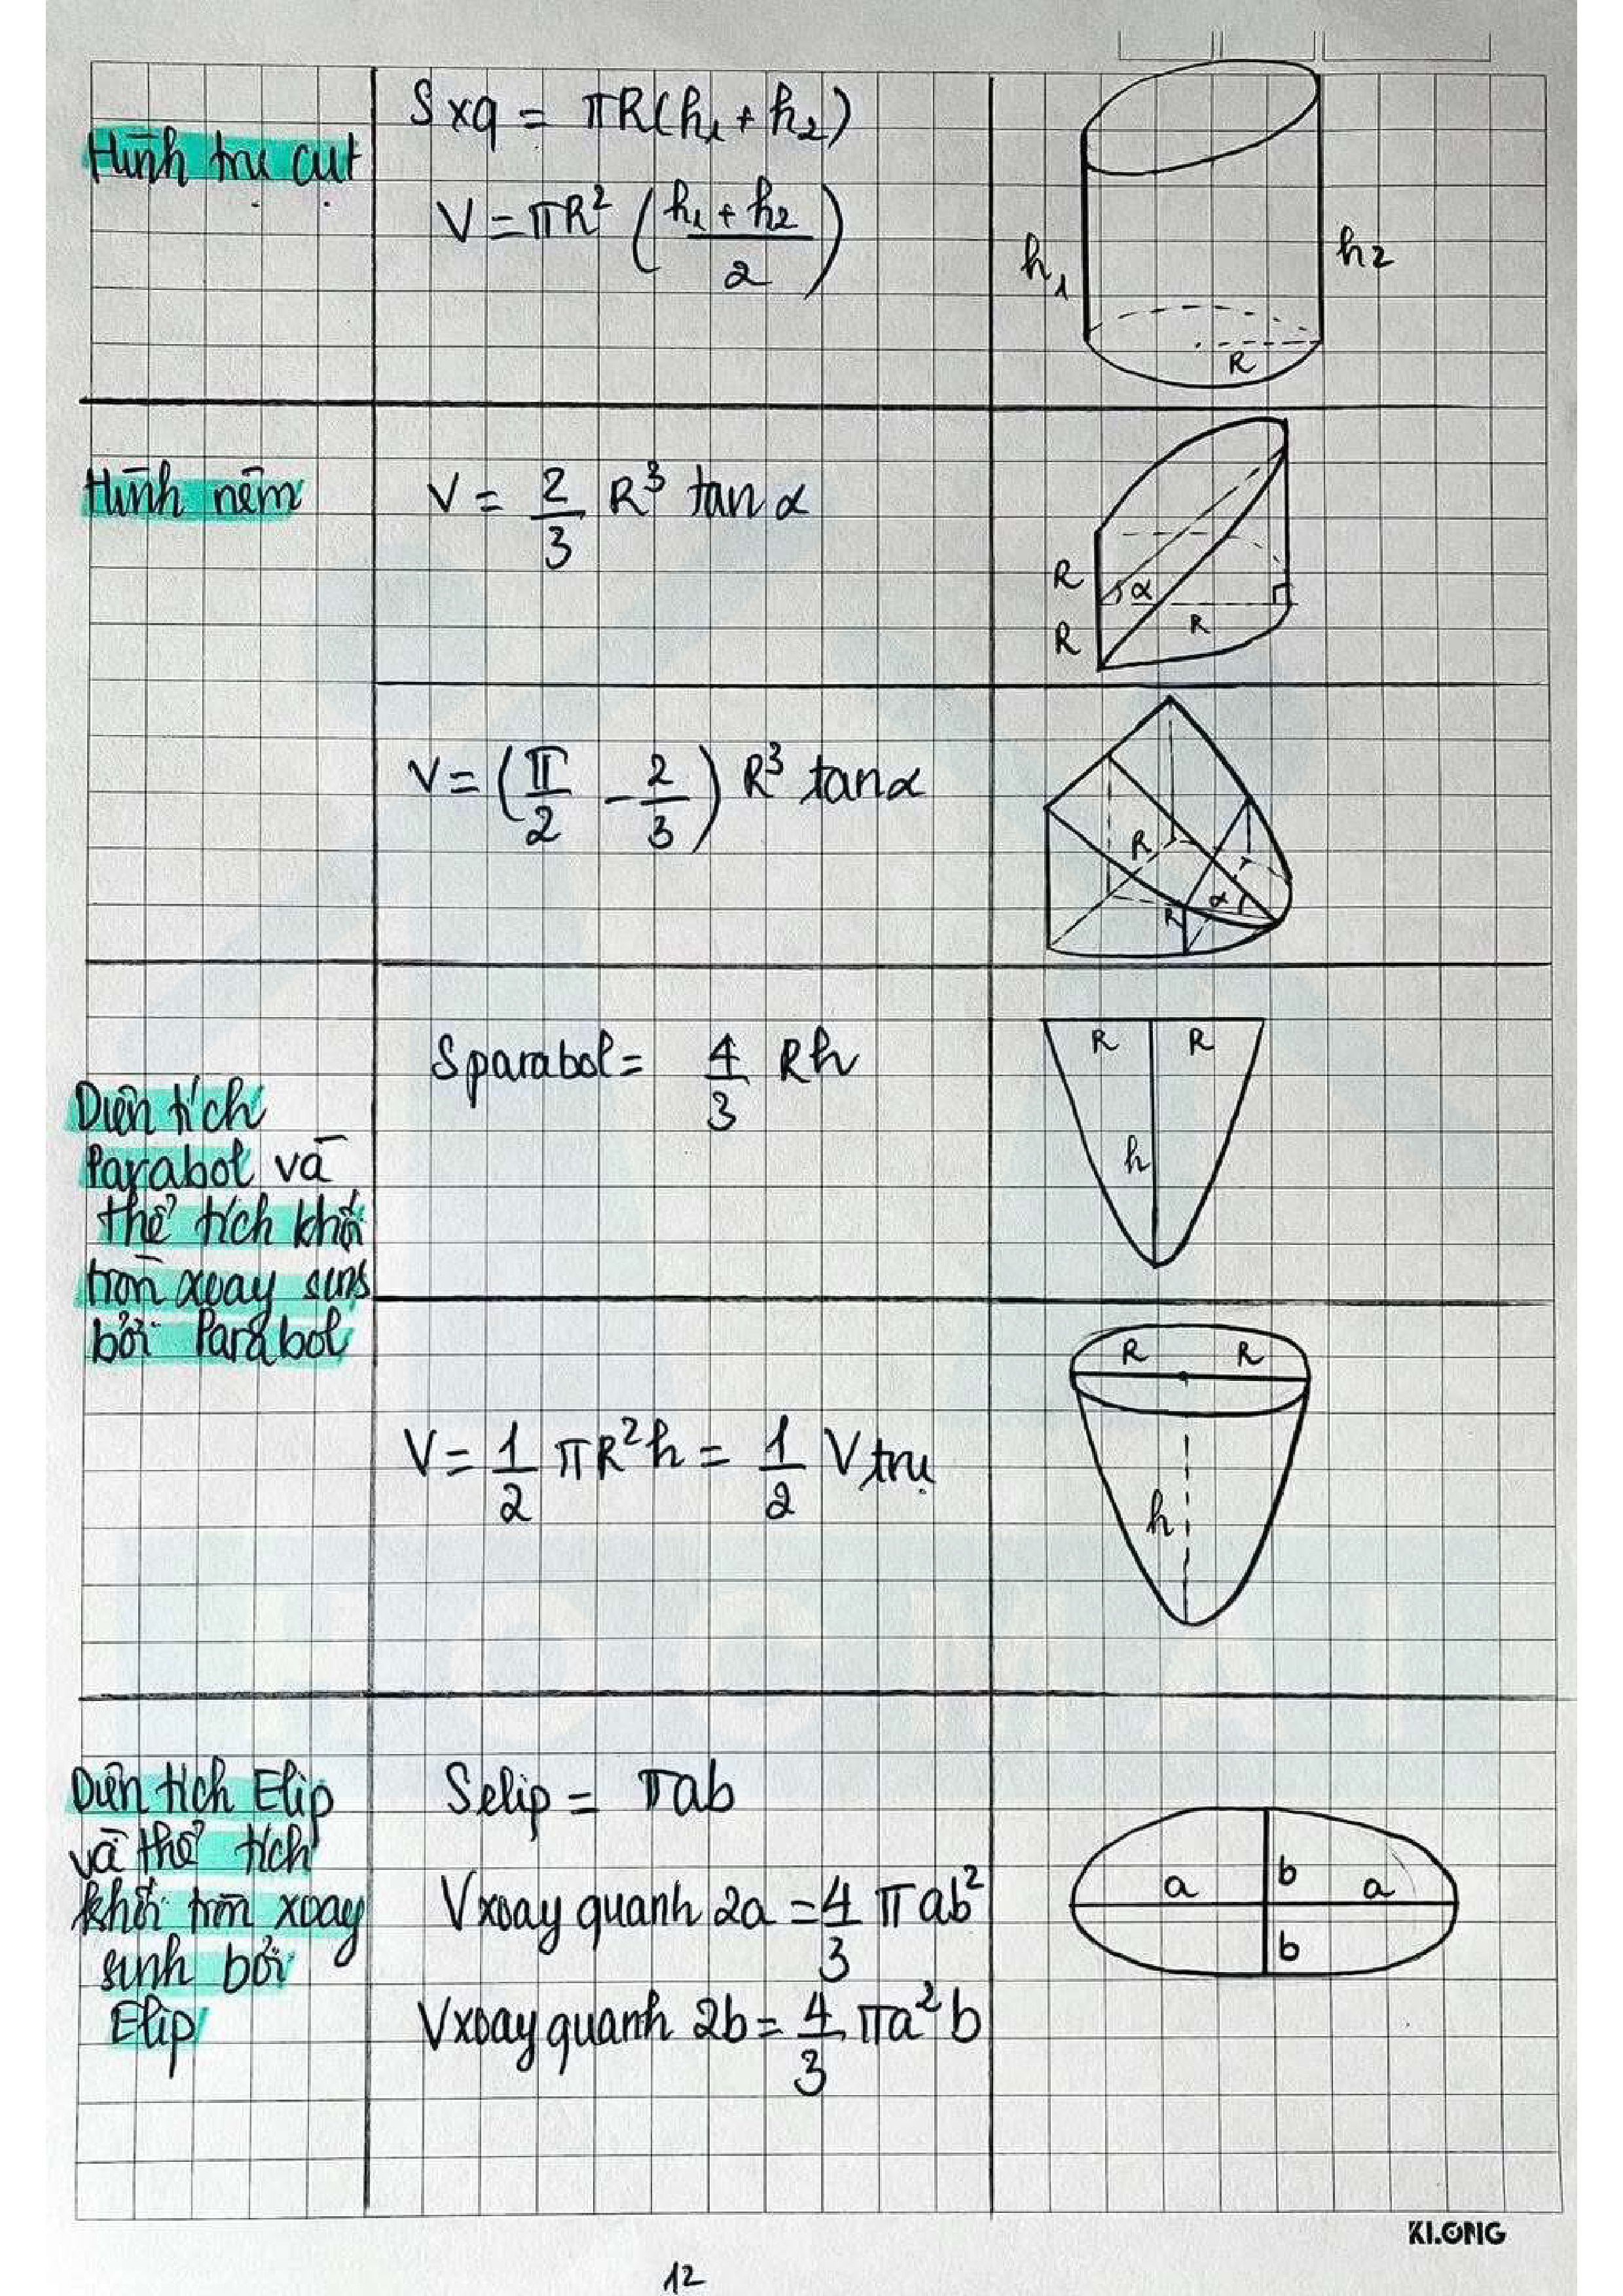 Hình trụ cụt
Sxq = πR(h₁ + h₂)
V = πR² (h₁ + h₂ / 2)
h₁
h2
R
Hình nêm
V = 2/3 R³ tan α
R
α
R
R
V = (π/2 - 2/3) R³ tanα
R
α
R
Diện tích
Parabol và
thể tích khối
tròn xoay sinh
bởi Parabol
Sparabol = 4/3 Rh
R R
h
V = 1/2 πR²h = 1/2 Vtrụ
R R
h
Diện tích Elip
và thể tích
khối tròn xoay
sinh bởi
Elip
Selip = πab
Vxoay quanh 2a = 4/3 πab²
Vxoay quanh 2b = 4/3 πa²b
a b a
b
KLONG
12